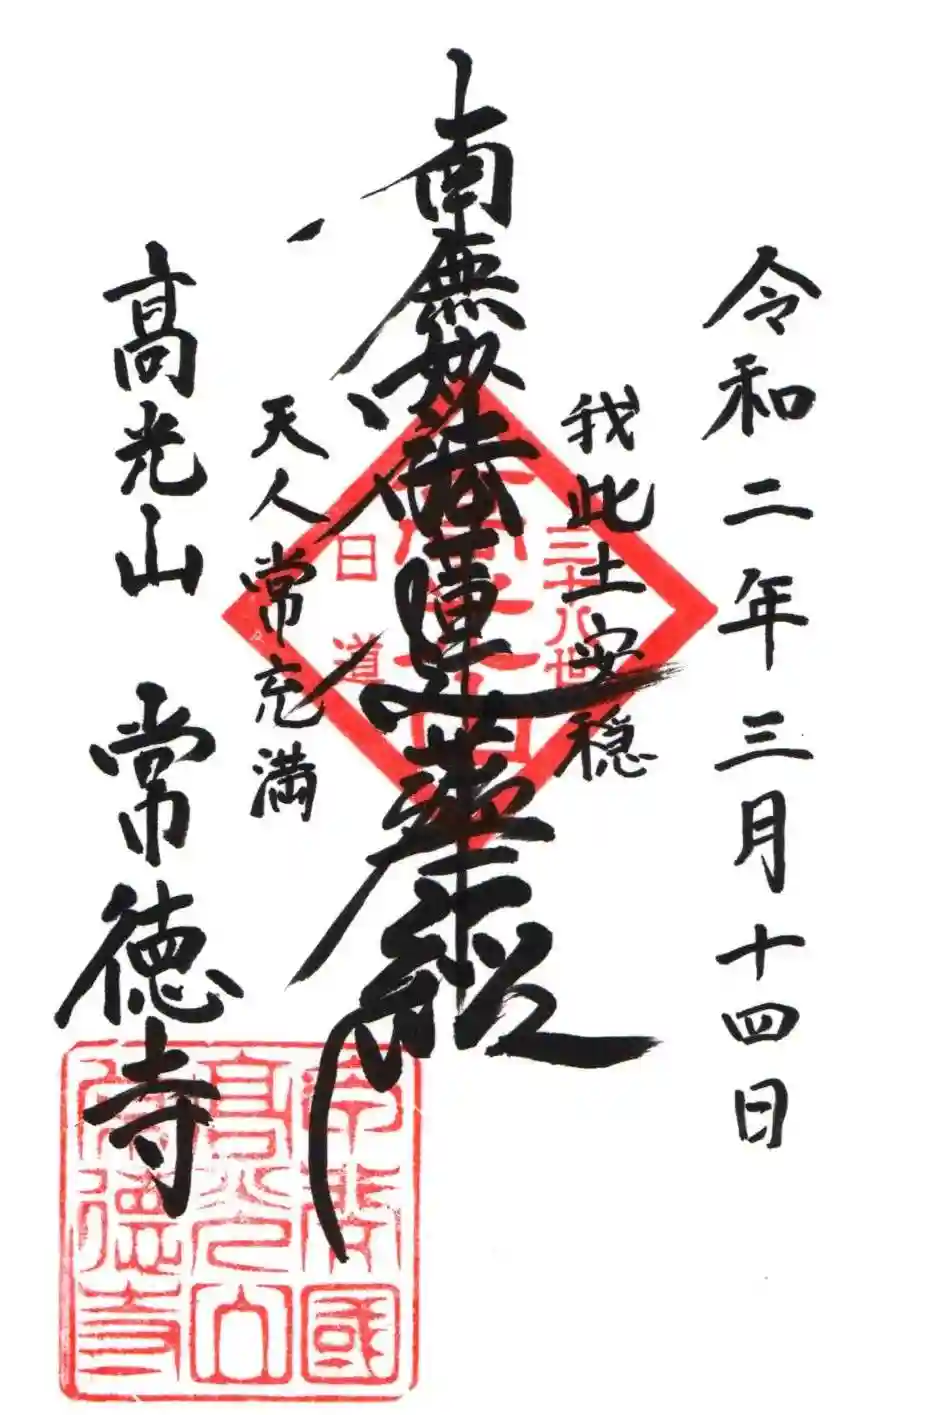 令和二年三月十四日
我此土安穏
南無妙法蓮華経
天人常充満
高光山 常徳寺
三十八世
日道
高光山
常徳寺